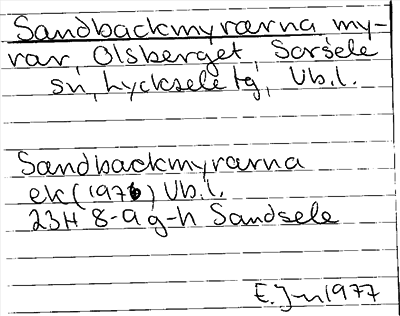 Sandbackmyrarna my-
rar, Olsberget, Sorsele
sn, Lycksele tg, Vb.l.
Sandbackmyrarna
ek (1976) Vb.l.
23H 8-9 g-h Sandsele
1977